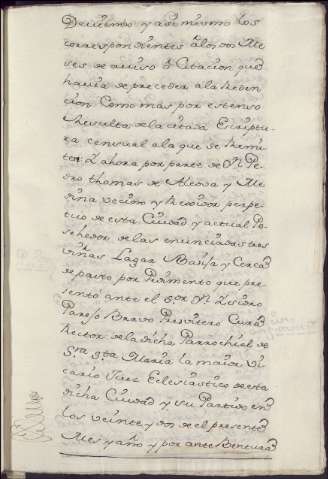 Deciembre y asimismo los
correspondientes a los dos Me-
ses de aviso o Citacion que
havia de preceder a la Reden-
cion Como mas por estenso
Resulta de la citada Escriptu-
ra censual a la que se Remi-
ten Y ahora por parte de Dn Pe-
dro thomas de Alcova y Me-
dina vecino y Rexidor perpe-
tuo de esta Ciudad y actual Po-
sehedor de las enunciadas tres
viñas Lagar Basija y Cercado
de pasto por Pedimento que pre-
sentó ante el Sor Dn Isidro
Parejo Bravo Presvitero Cura
Rector de la dicha Parrochial de
Sta Maria la maior Vi-
cario Juez Eclesiastico de esta
dicha Ciudad y su Partido en
los veinte y dos de el presente
Mes y año y por ante Bentura